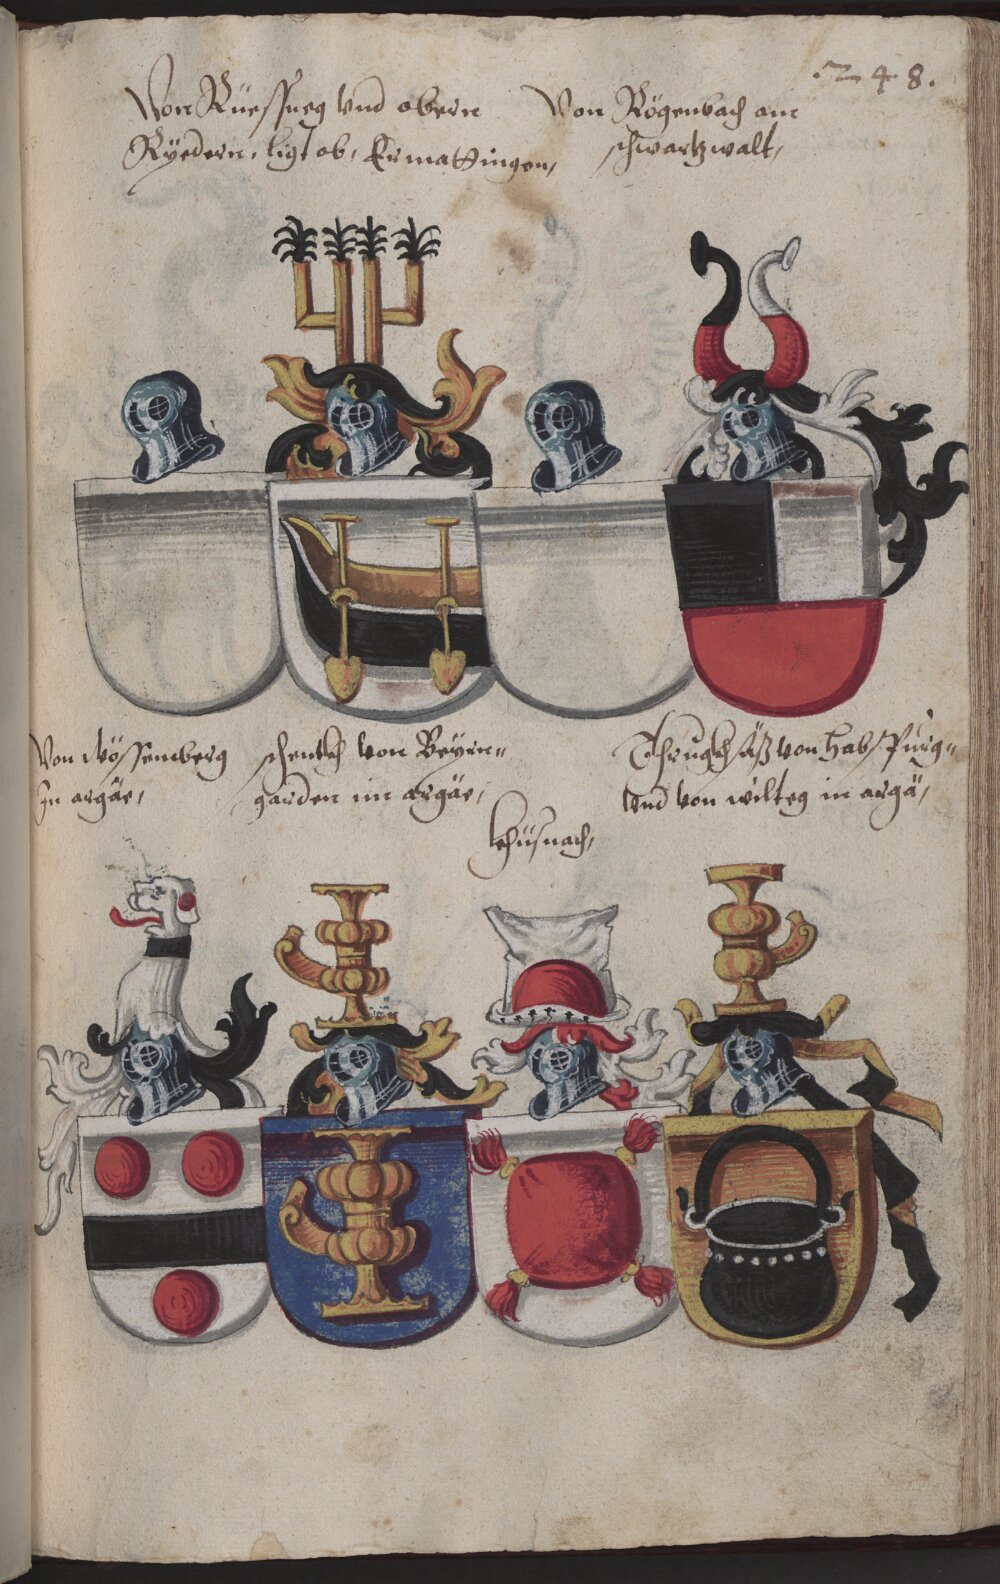 .248.
Von Rüessneg vnd obern
Ryedern, ligt ob, Ermattingen,
Von Rögenbach am
schwartzwalt,
Von Wössenberg
In argäe,
schenckh von Beyrn„
garden im argäe,
khüsnach,
Thrugksäß von Habspurg„
vnd von wilteg in argä,